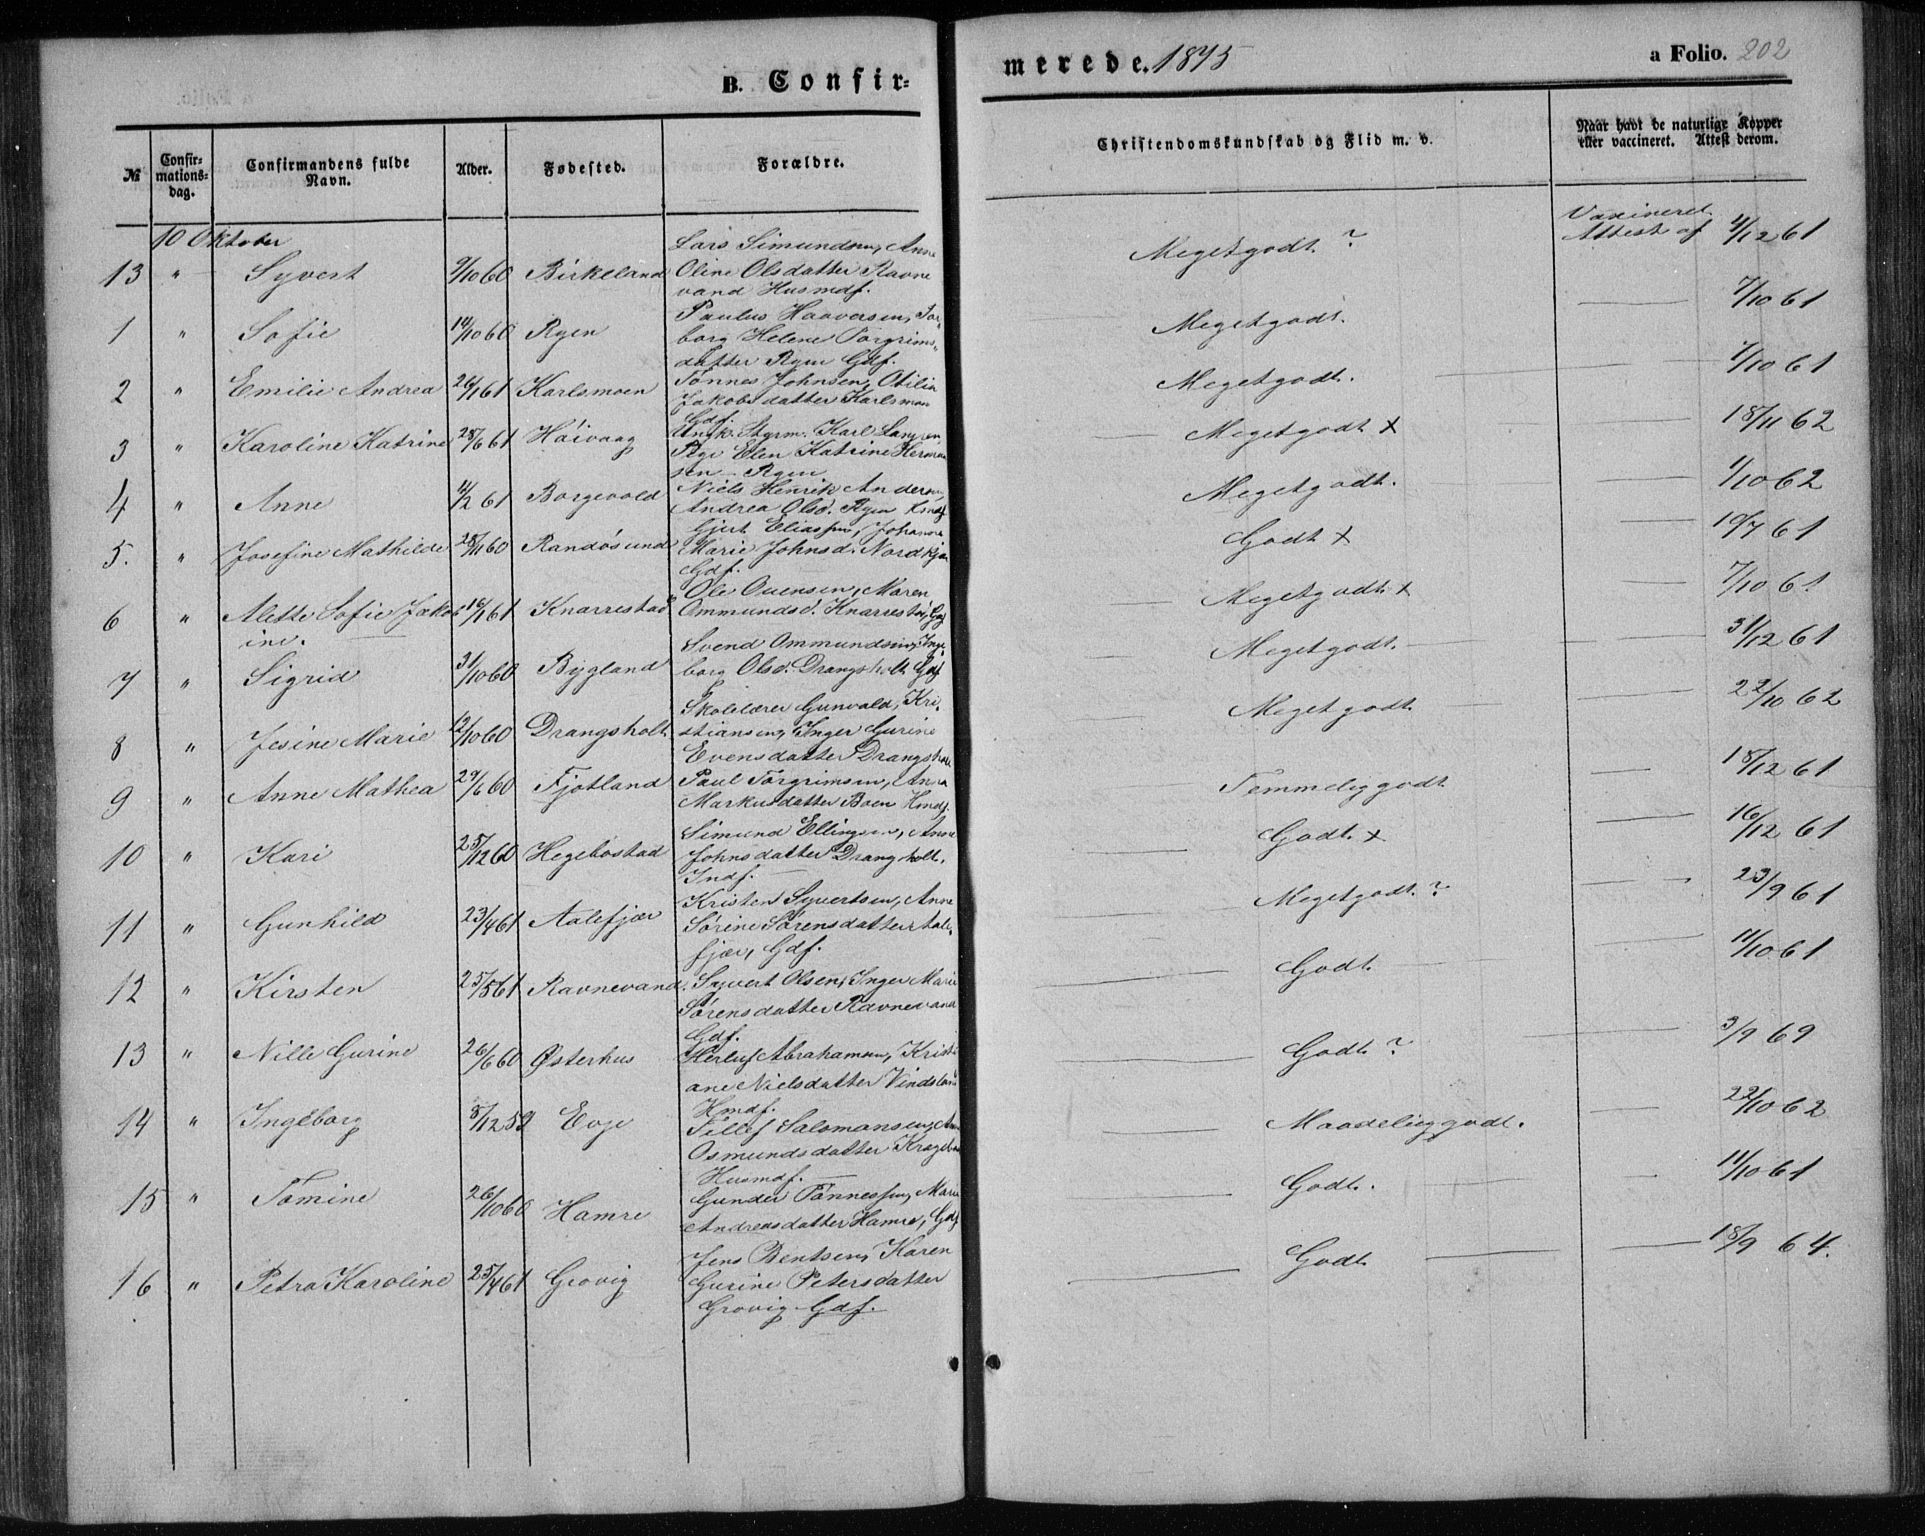 B. Confir-
merede. 1875
a Folio. 202
№
Confir-
mations-
dag.
Confirmandens fulde
Navn.
Alder.
Fødested.
Forældre.
Christendomskundskab og Flid m. v.
Naar havt de naturlige Kopper
eller vaccineret. Attest derom.
10 Oktober
13 " Syvert 9/10 60 Birkeland
Lars Simundsen, Anne
Oline Olsdatter Ravne
vand Husmdf.
Megetgodt ?
Vaxineret
Attest af 4/12 61
1 " Sofie 14/10 60 Ryen
Paulus Haaversen, Tor
borg Helene Torgrims-
datter Ryen Gdf.
Megetgodt.
7/10 61
2 " Emilie Andrea 26/1 61 Karlsmoen
Tønnes Johnsen, Otilia
Jakobsdatter Karlsmoen
Gdf.
Megetgodt.
7/10 61
3 " Karoline Katrine 28/6 61 Höivaag
Ungk. Styrm. Karl
Pige Elen Katrine Herman
sen - Ryen
Megetgodt x
18/11 62
4 " Anne 4/2 61 Borgevold
Niels Henrik Andersen
Andrea Olsd. Ryen
Megetgodt.
1/10 62
5. " Josefine Mathilde 28/11 60 Randösund
Gjert Eliassen, Johanne
Marie Johnsd. Nordkjær
Gdf.
Godt x
10/7 61
6 " Alette Sofie Jakob
ine. 16/1 61 Knarrestad
Ole Ouensen, Maren
Ommundsd. Knarrestad, Gdf
Megetgodt. x
7/10 61
7 " Sigrid 31/10 60 Bygland
Svend Ommundsen, Inge
borg Olsd. Drangsholt Gdf
Megetgodt.
31/12 61
8 " Jesine Marie 12/10 60 Drangsholt
Skolelærer Gunvald, Kri-
stiansen, Inger Gurine
Evensdatter Drangsholt
Megetgodt
22/10 62
9 " Anne Mathea 29/6 60 Fjotland
Paul Torgrimsen, Anna
Markusdatter Boen Hmdf.
Temmeliggodt
18/12 61
10 " Kari 25/12 60 Hegebostad
Simund Ellingsen, Anne
Johnsdatter Drangsholt.
Indf.
Godt. x
16/12 61
11 " Gunhild 23/4 61 Aalefjær
Kristen Syvertsen, Anne
Sörine Sörensdatter Aale-
fjær, Gdf.
Megetgodt. ?
23/9 61
12 " Kirsten 25/5 61 Ravnevand.
Syvert Olsen, Inger Marie
Sörensdatter Ravnevand
Gdf.
Godt.
11/10 61
13 " Nille Gurine 26/6 60 Østerhus
Herluf Abrahamsen, Kristi
ane Nielsdatter Vindsland
Hmdf.
Godt. ?
3/9 69
14 " Ingeborg 3/12 59 Evje
Tellef Salomonsen, Anne
Osmundsdatter Krageboen
Husmdf.
Maadeliggodt.
22/10 62
15 " Tomine 26/10 60 Hamre
Gunder Tönnessen, Maren
Andreasdatter Hamre, Gdf
Godt.
11/10 61
16 " Petra Karoline 25/4 61 Grovig
Jens Bentsen, Karen
Gurine Petersdatter
Grovig. Gdf.
Godt.
18/9 64.